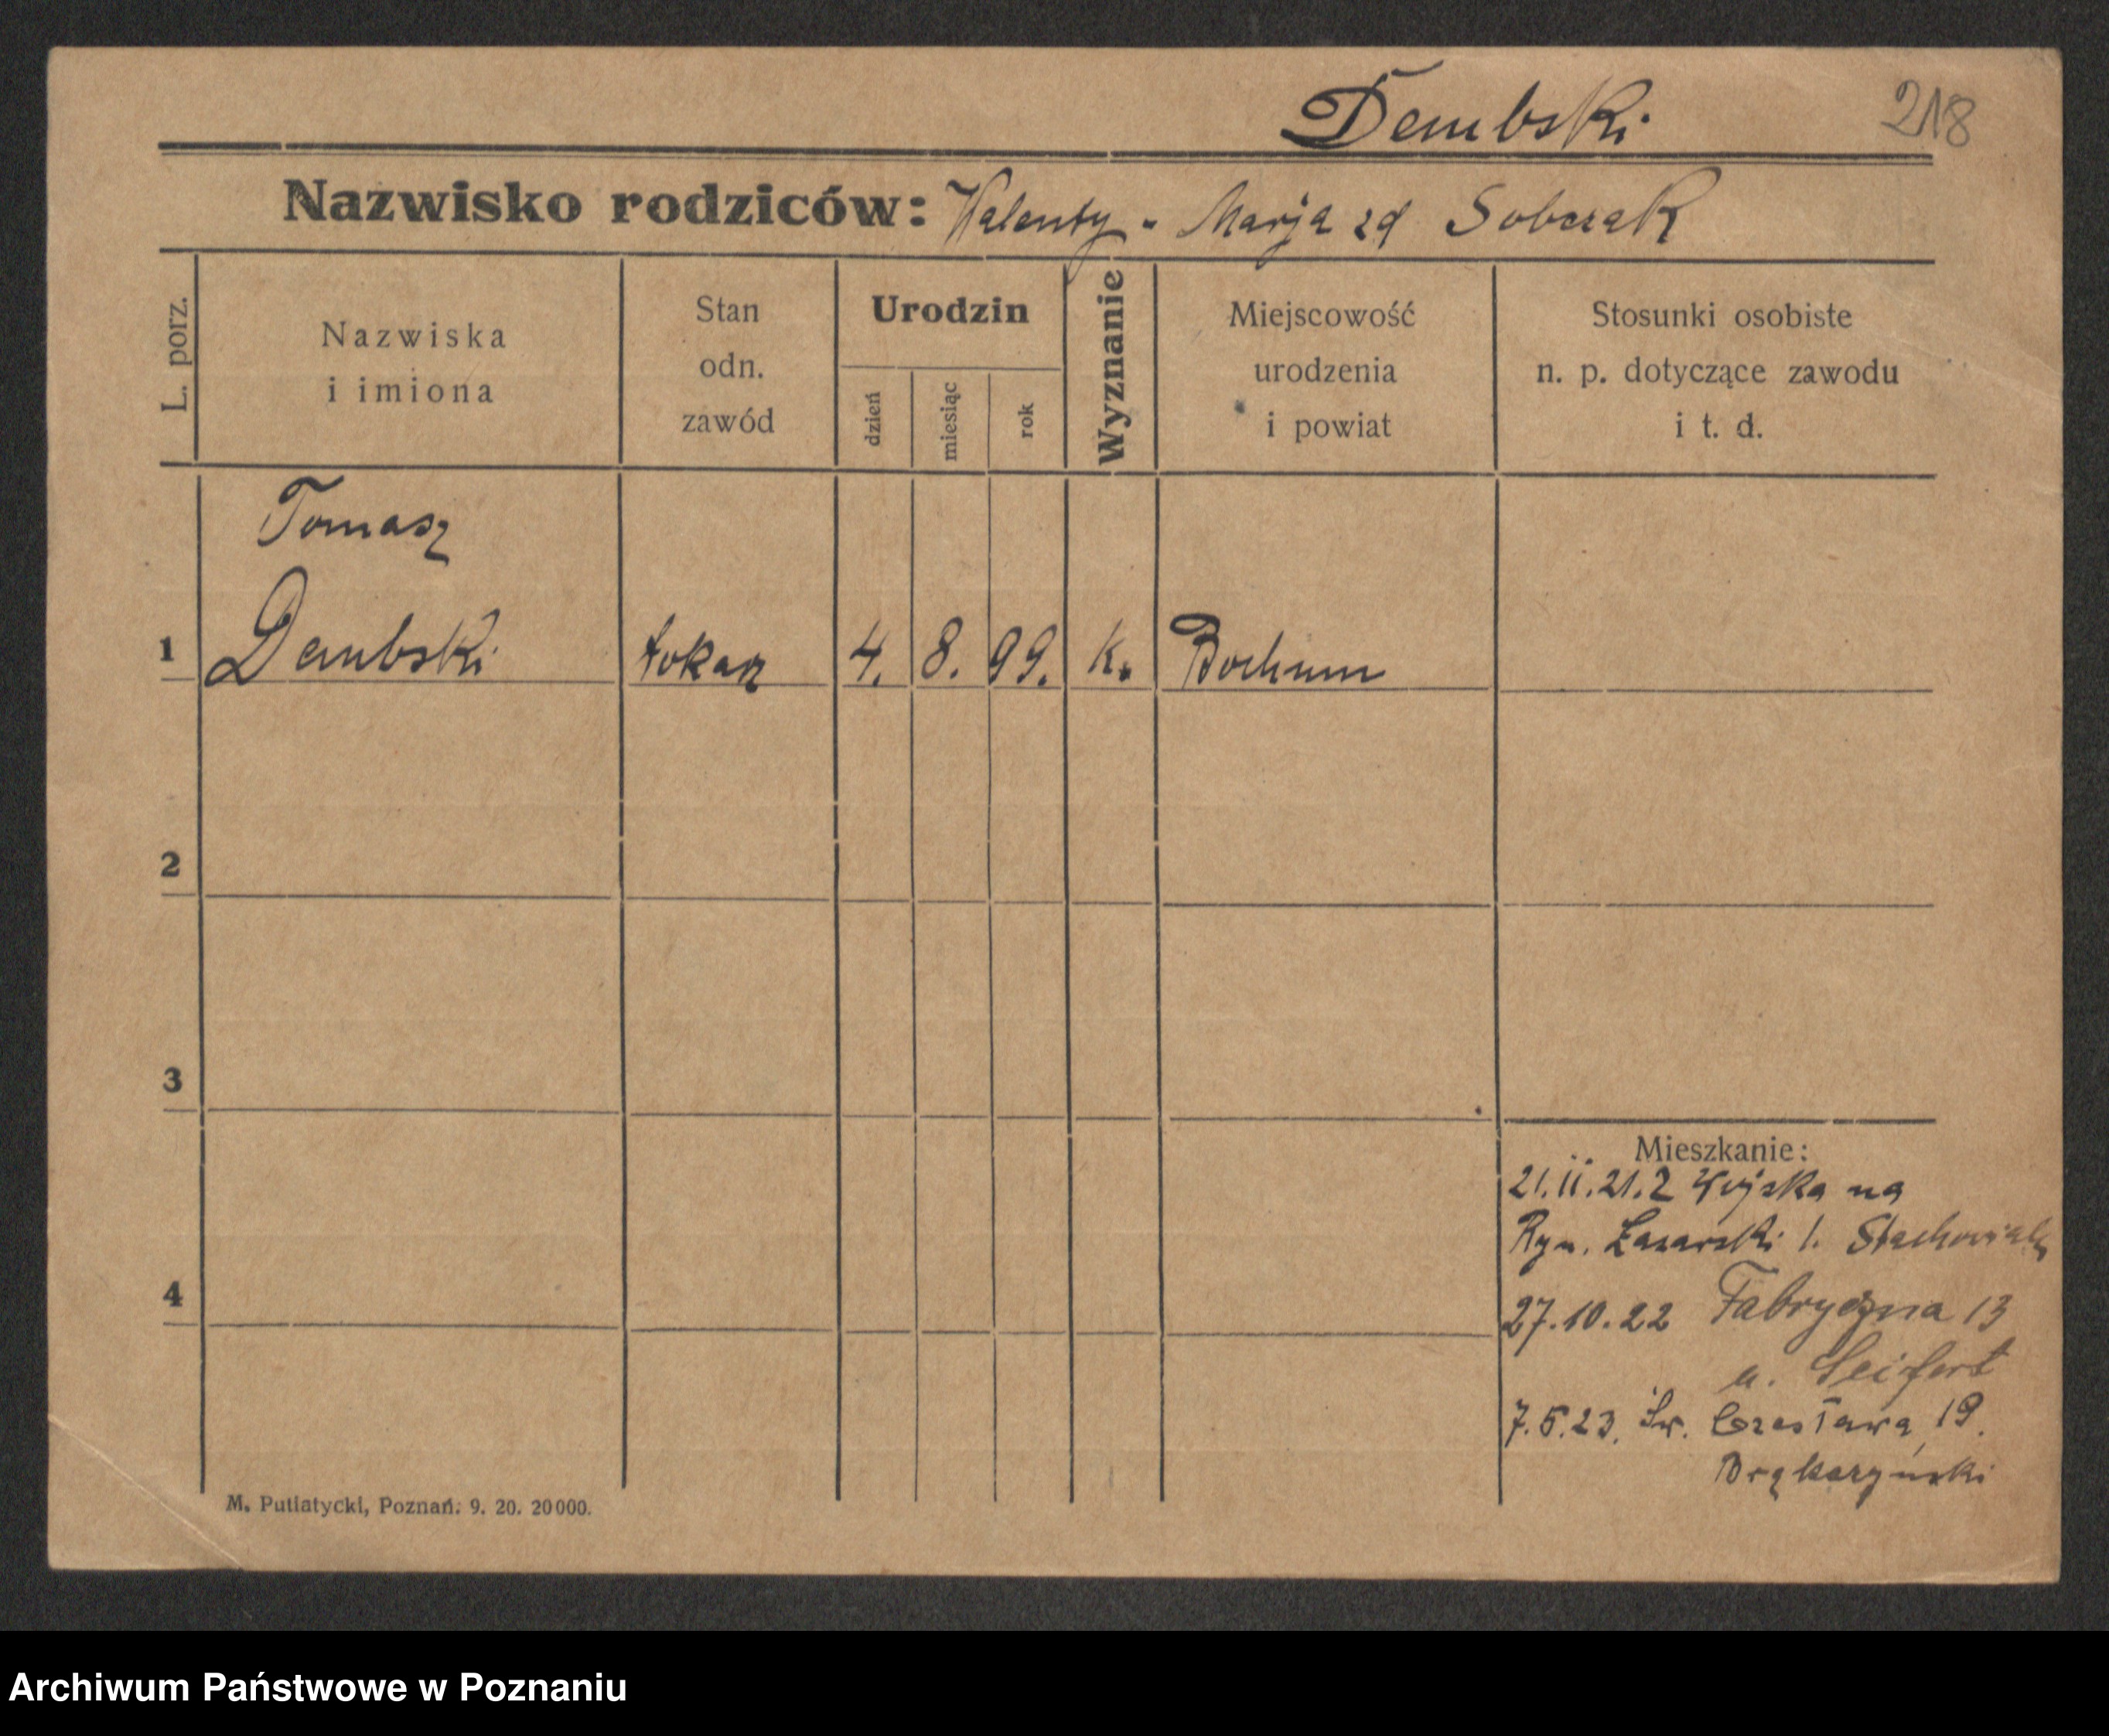 Dembski
218
Nazwisko rodziców: Walenty - Marja zd Sobczak
L. porz.
Nazwiska
i imiona
Stan
odn.
zawód
Urodzin
dzień
miesiąc
rok
Wyznanie
Miejscowość
urodzenia
i powiat
Stosunki osobiste
n. p. dotyczące zawodu
i t. d.
Tomasz
1 Dembski tokarz 4. 8. 99. k. Bochum
2
3
4
Mieszkanie:
21.II.21. z Wojska na
Ryn. Łazarski 1. Stachowiak
27.10.22 Fabryczna 13
u. Seifert
7.5.23. Św. Czesława 19.
M. Putiatycki, Poznań. 9. 20. 20000.
Archiwum Państwowe w Poznaniu